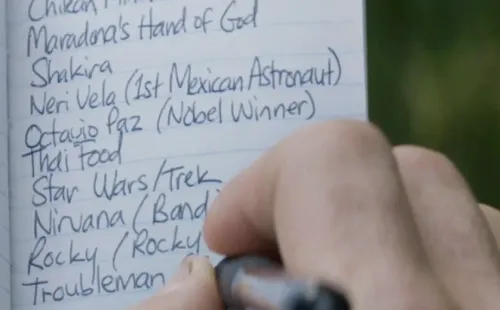 Chilean
Maradona's Hand of God
Shakira
Neri Vela (1st Mexican Astronaut)
Octavio Paz (Nobel Winner)
Thai Food
Star Wars/Trek
Nirvana (Band
Rocky (Rocky
Troubleman